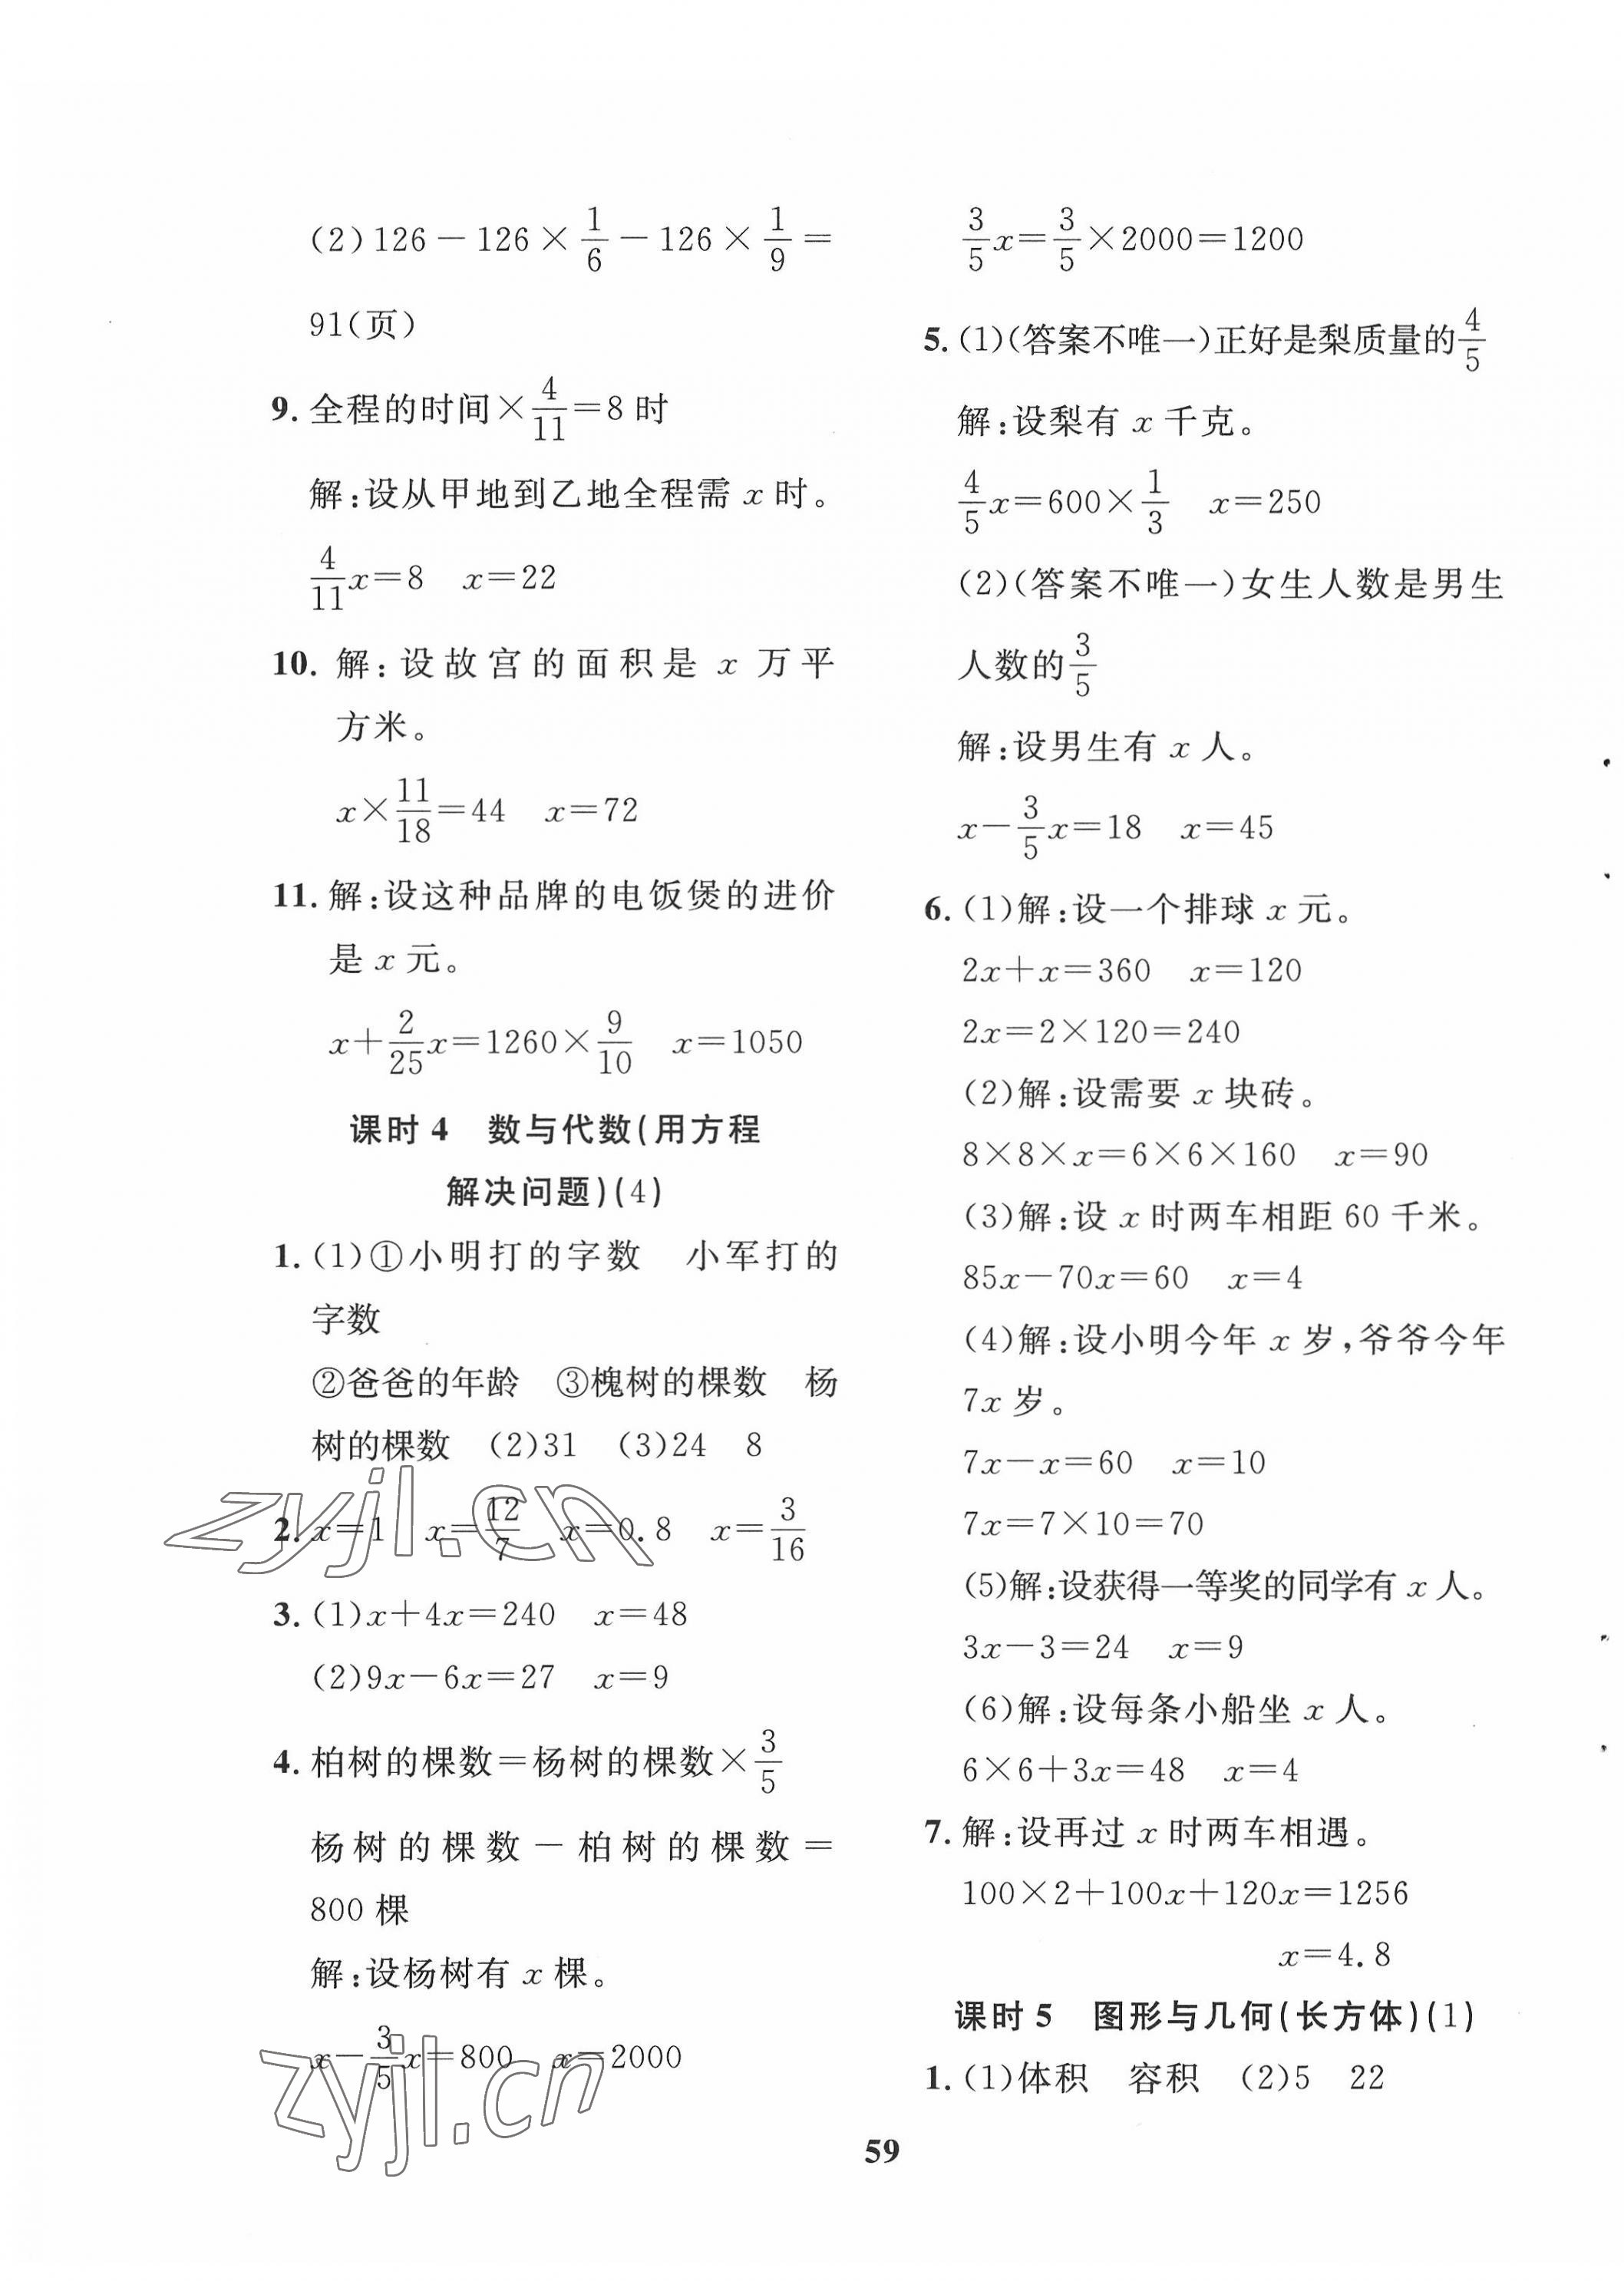 (2)126－126×1/6－126×1/9＝
91(页)
9. 全程的时间×4/11＝8时
解:设从甲地到乙地全程需 x 时。
4/11x＝8　x＝22
10. 解:设故宫的面积是 x 万平
方米。
x×11/18＝44　x＝72
11. 解:设这种品牌的电饭煲的进价
是 x 元。
x＋2/25x＝1260×9/10　x＝1050
课时 4　数与代数(用方程
解决问题)(4)
1. (1)①小明打的字数　小军打的
字数
②爸爸的年龄　③槐树的棵数　杨
树的棵数　(2)31　(3)24　8
2. x＝1　x＝12/7　x＝0.8　x＝3/16
3. (1)x＋4x＝240　x＝48
(2)9x－6x＝27　x＝9
4. 柏树的棵数＝杨树的棵数×3/5
杨树的棵数－柏树的棵数＝
800 棵
解:设杨树有 x 棵。
x－3/5x＝800　x＝2000
3/5x＝3/5×2000＝1200
5. (1)(答案不唯一)正好是梨质量的4/5
解:设梨有 x 千克。
4/5x＝600×1/3　x＝250
(2)(答案不唯一)女生人数是男生
人数的3/5
解:设男生有 x 人。
x－3/5x＝18　x＝45
6. (1)解:设一个排球 x 元。
2x＋x＝360　x＝120
2x＝2×120＝240
(2)解:设需要 x 块砖。
8×8×x＝6×6×160　x＝90
(3)解:设 x 时两车相距 60 千米。
85x－70x＝60　x＝4
(4)解:设小明今年 x 岁,爷爷今年
7x 岁。
7x－x＝60　x＝10
7x＝7×10＝70
(5)解:设获得一等奖的同学有 x 人。
3x－3＝24　x＝9
(6)解:设每条小船坐 x 人。
6×6＋3x＝48　x＝4
7. 解:设再过 x 时两车相遇。
100×2＋100x＋120x＝1256
x＝4.8
课时 5　图形与几何(长方体)(1)
1. (1)体积　容积　(2)5　22
59
zyjl.cn
zyjl.cn